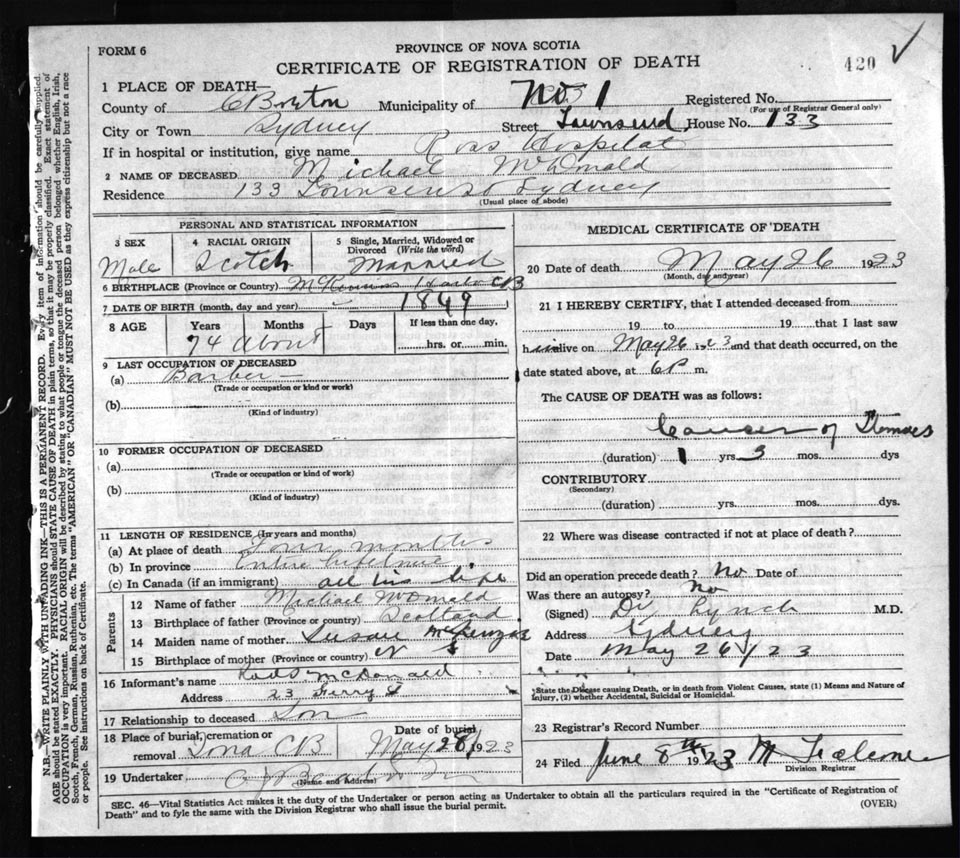 FORM 6
PROVINCE OF NOVA SCOTIA
CERTIFICATE OF REGISTRATION OF DEATH
420
1 PLACE OF DEATH—
County of C Breton Municipality of No 1 Registered No.
(For use of Registrar General only)
City or Town Sydney Street Townsend House No. 133
If in hospital or institution, give name Ross Hospital
2 NAME OF DECEASED Michael McDonald
Residence 133 Townsend St Sydney
(Usual place of abode)
PERSONAL AND STATISTICAL INFORMATION
3 SEX Male
4 RACIAL ORIGIN Scotch
5 Single, Married, Widowed or Divorced (Write the word) Married
6 BIRTHPLACE (Province or Country) CB
7 DATE OF BIRTH (month, day and year) 1849
8 AGE Years Months Days If less than one day,
74 About hrs. or min.
9 LAST OCCUPATION OF DECEASED
(a) Barber
(Trade or occupation or kind or work)
(b)
(Kind of industry)
10 FORMER OCCUPATION OF DECEASED
(a)
(Trade or occupation or kind of work)
(b)
(Kind of industry)
11 LENGTH OF RESIDENCE (In years and months)
(a) At place of death Four months
(b) In province Entire
(c) In Canada (if an immigrant) all his life
Parents
12 Name of father Michael McDonald
13 Birthplace of father (Province or country) Scotland
14 Maiden name of mother Susan McKenzie
15 Birthplace of mother (Province or country) N S
16 Informant's name McDonald
Address 23 Ferry St
17 Relationship to deceased Son
18 Place of burial, cremation or removal Iona CB
Date of burial May 28, 1923
19 Undertaker
(Name and Address)
MEDICAL CERTIFICATE OF DEATH
20 Date of death May 26 1923
(Month, day and year)
21 I HEREBY CERTIFY, that I attended deceased from
19 to 19 that I last saw
him alive on May 26 1923 and that death occurred, on the
date stated above, at 6P m.
The CAUSE OF DEATH was as follows:
Cancer of Stomach
(duration) 1 yrs 3 mos. dys
CONTRIBUTORY
(Secondary)
(duration) yrs. mos. dys.
22 Where was disease contracted if not at place of death?
Did an operation precede death? No Date of
Was there an autopsy? No
(Signed) Dr Lynch M.D.
Address Sydney
Date May 26/23
State the Disease causing Death, or in death from Violent Causes, state (1) Means and Nature of
Injury, (2) whether Accidental, Suicidal or Homicidal.
23 Registrar's Record Number
24 Filed June 8th 1923 M
Division Registrar
SEC. 46—Vital Statistics Act makes it the duty of the Undertaker or person acting as Undertaker to obtain all the particulars required in the "Certificate of Registration of
Death" and to fyle the same with the Division Registrar who shall issue the burial permit.
(OVER)
N.B.—WRITE PLAINLY WITH UNFADING INK—THIS IS A PERMANENT RECORD. Every item of information should be carefully supplied.
AGE should be stated EXACTLY. PHYSICIANS should STATE CAUSE OF DEATH in plain terms, so that it may be properly classified. Exact statement of
OCCUPATION is very important. RACIAL ORIGIN will be described by stating to what people or tongue the deceased person belonged whether English, Irish,
Scotch, French, German, Russian, Ruthenian, etc. The terms "AMERICAN" OR "CANADIAN" MUST NOT BE USED as they express citizenship but not a race
or people. See instructions on back of Certificate.